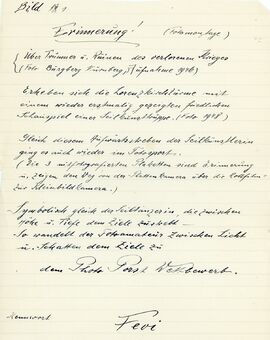 Bild № 1
Erinnerung! (Fotomontage)
(Über Trümmer u. Ruinen des verlorenen Krieges
(Foto Burgberg Nürnberg) Aufnahme 1946)
Erheben sich die Lorenzkirchtürme mit
einem wieder erstmalig gezeigten friedlichen
Schauspiel einer Seiltanztruppe. (Foto 1948)
Gleich diesem Aufwärtsstreben der Seilkünstler
ging es auch wieder im Fotosport.
(Die 3 mitfotografierten Plaketten sind Erinnerung
u. zeigen den Weg von der Plattenkamera über die Rollfilm-
zur Kleinbildkamera.)
Symbolisch gleich der Seiltänzerin, die zwischen
Höhe u. Tiefe dem Ziele zustrebt –
So wandelt der Fotoamateur zwischen Licht
u. Schatten dem Ziele zu
dem Photo Porst Wettbewerb.
Kennwort
Fevi